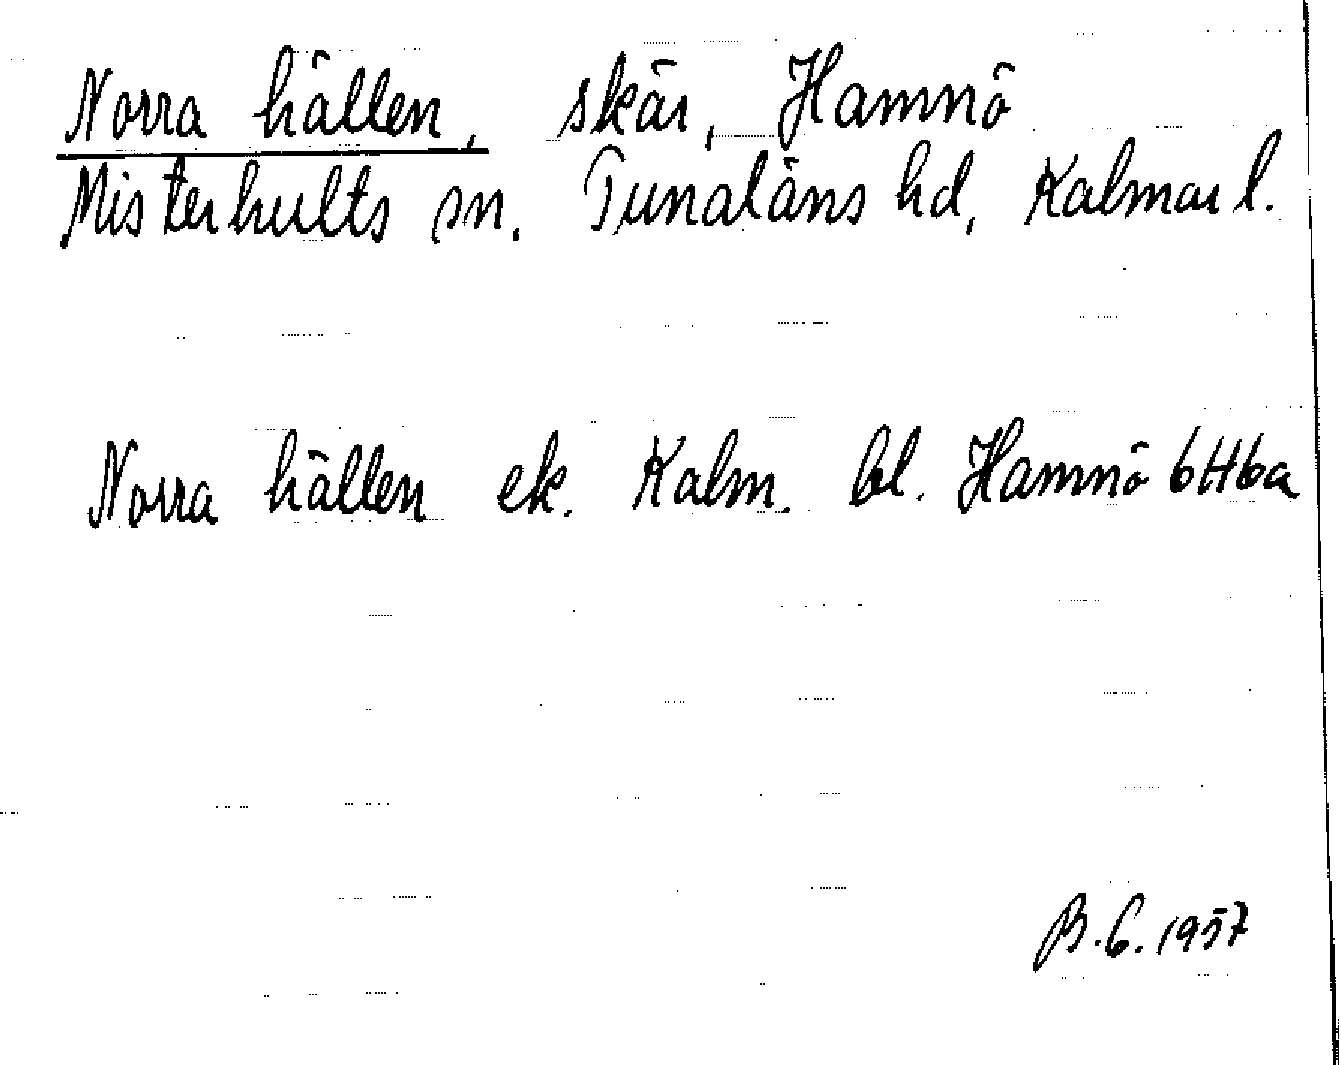 Norra hällen, skär, Hamnö
Misterhults sn. Tunaläns hd, Kalmar l.
Norra hällen ek. Kalm. bl. Hamnö 6H6a
B.G. 1957